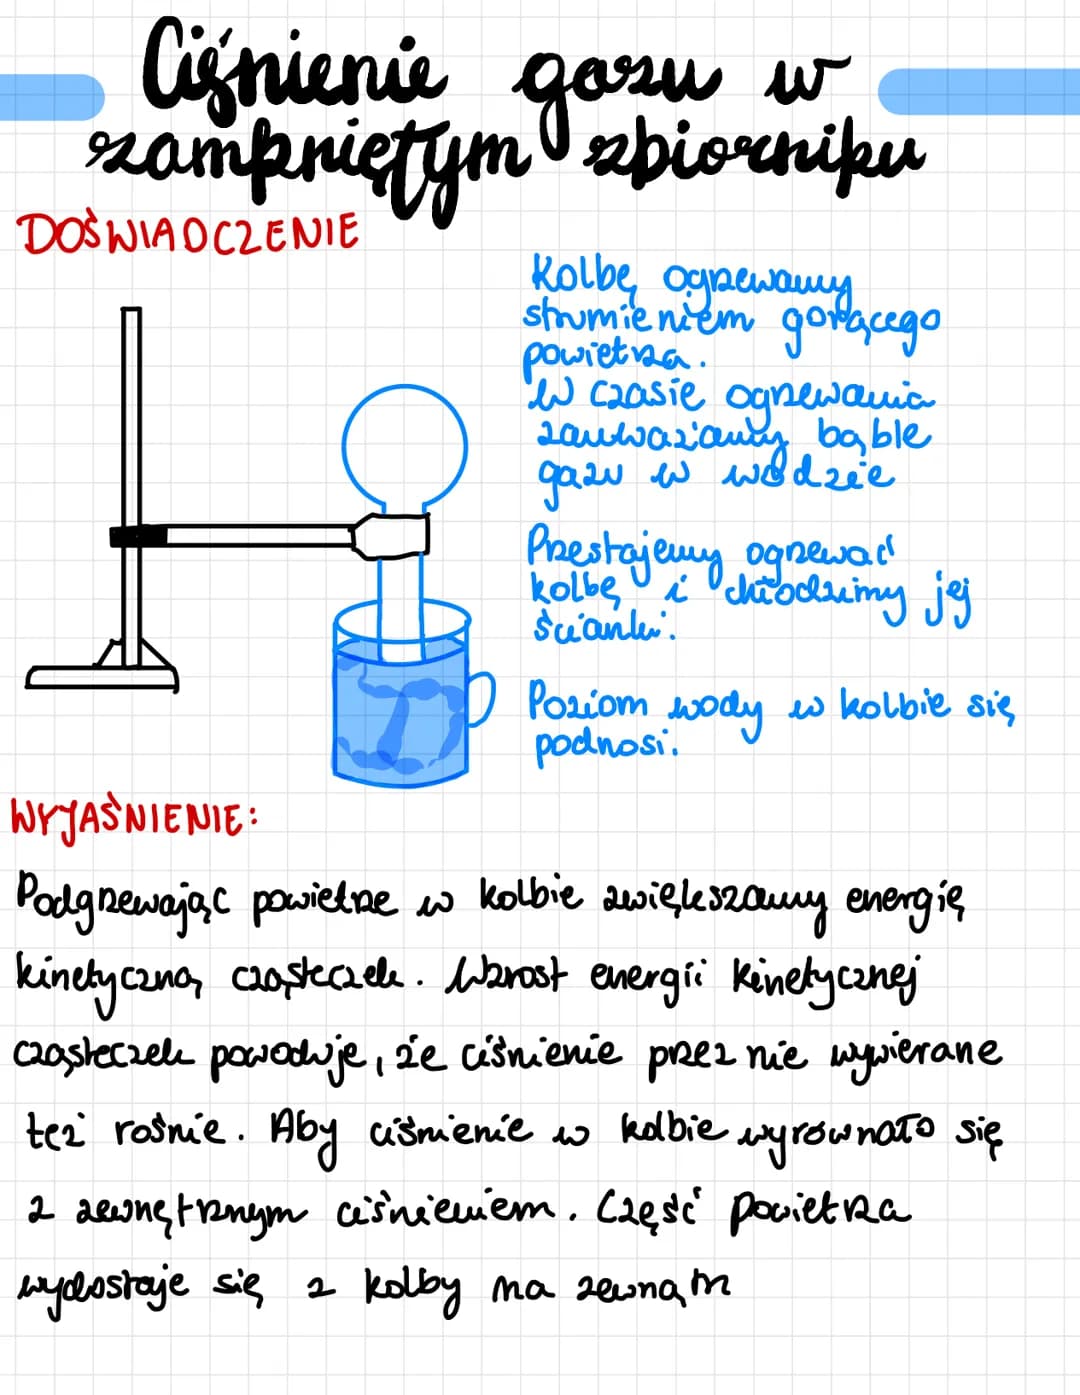 Ciśnienie gazu w
zamkniętym zbiorniku
DOŚWIADCZENIE
Kolbę ogrzewamy
strumieniem gorącego
powietrza.
W czasie ogrzewania
zauważamy bąble
gazu w wodzie
Przestajemy ogrzewać
kolbę i chłodzimy jej
ścianki.
Poziom wody w kolbie się
podnosi.
WYJAŚNIENIE:
Podgrzewając powietrze w kolbie zwiększamy energię
kinetyczną cząsteczek. Wzrost energii kinetycznej
cząsteczek powoduje, że ciśnienie przez nie wywierane
też rośnie. Aby ciśnienie w kolbie wyrównało się
z zewnętrznym ciśnieniem. Część powietrza
wydostaje się z kolby na zewnątrz